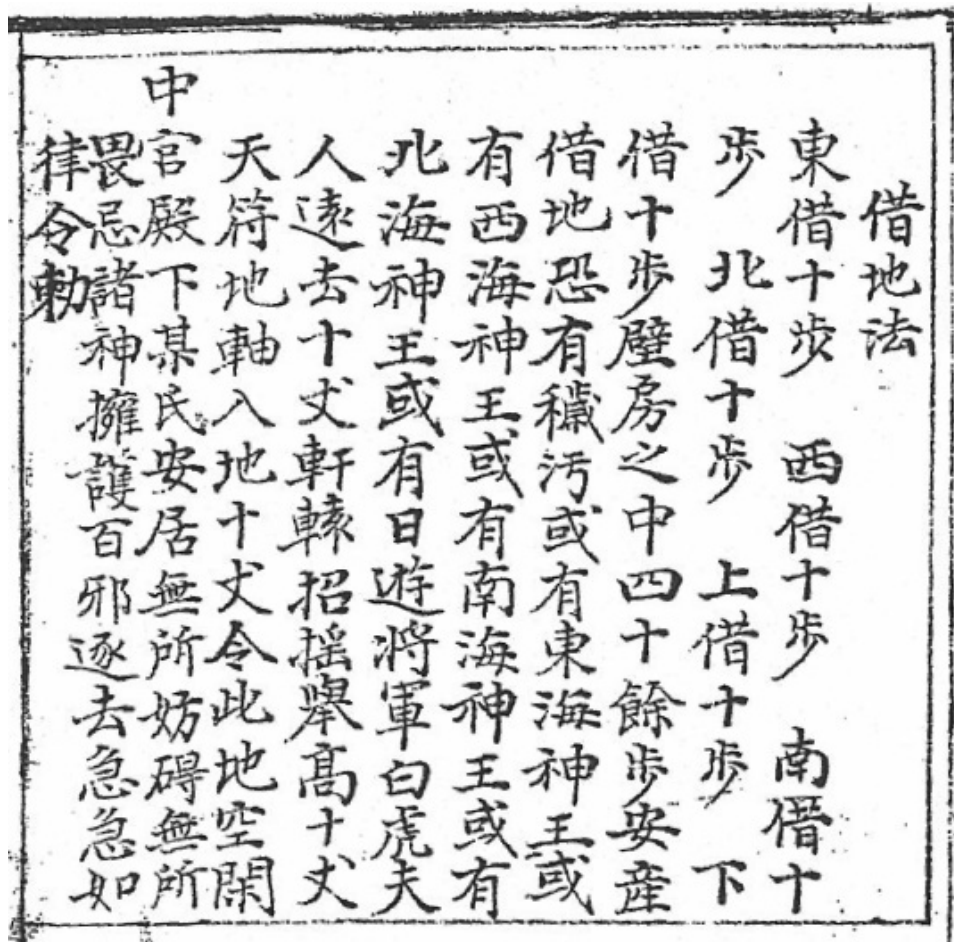 借地法
東借十步 西借十步 南借十
步 北借十步 上借十步 下
借十步壁房之中四十餘步安產
借地恐有穢污或有東海神王或
有西海神王或有南海神王或有
北海神王或有日遊將軍白虎夫
人遠去十丈軒轅招搖舉高十丈
天符地軸入地十丈令此地空閑
中官殿下某氏安居無所妨碍無所
畏忌諸神擁護百邪逐去急急如
律令勅